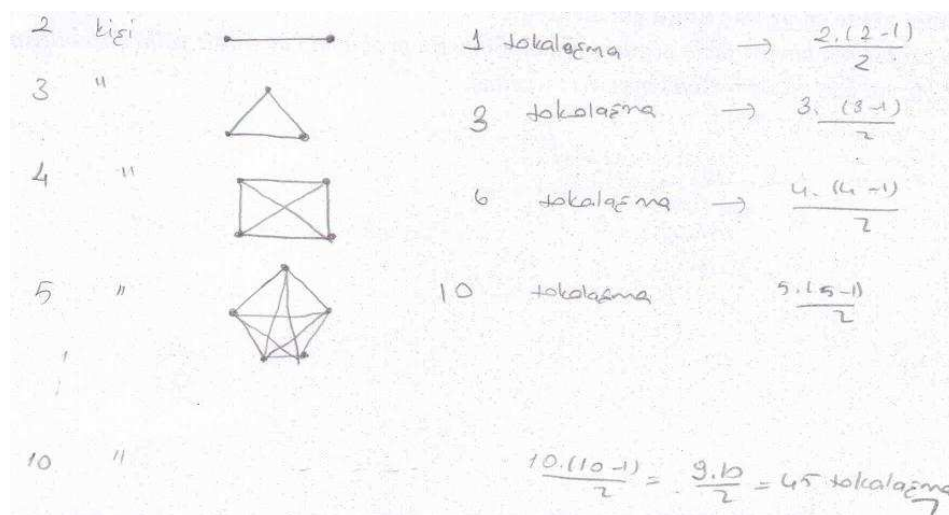 2 kişi 1 tokalaşma → 2.(2-1)/2
3 " 3 tokalaşma → 3.(3-1)/2
4 " 6 tokalaşma → 4.(4-1)/2
5 " 10 tokalaşma 5.(5-1)/2
10 " 10.(10-1)/2 = 9.10/2 = 45 tokalaşma